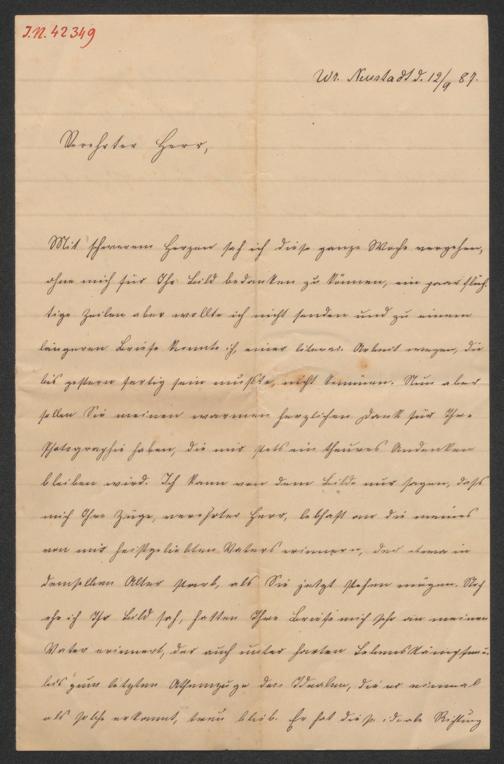 I.N. 42349
Wr. Neustadt d. 12/9 87.
Verehrter Herr,
Mit schwerem Herzen sah ich diese ganze Woche vergehen,
ohne mich für Ihr Bild bedanken zu können, ein paar flüch
tige Zeilen aber wollte ich nicht senden und zu einem
längeren Briefe konnte ich, einer literar. Arbeit wegen, die
bis gestern fertig sein mußte, nicht kommen. Nun aber
sollen Sie meinen warmen herzlichen Dank für Ihre
Photographie haben, die mir stets ein theures Andenken
bleiben wird. Ich kann von dem Bilde nur sagen, daß
mich Ihre Züge, verehrter Herr, lebhaft an die meines
von mir heißgeliebten Vaters erinnern, der etwa in
demselben Alter starb, als Sie jetzt stehen mögen. Noch
ehe ich Ihr Bild sah, hatten Ihre Briefe mich sehr an meinen
Vater erinnert, der auch unter harten Lebenskämpfen
bis zum letzten Athemzuge den Idealen, die er einmal
als solche erkannt, treu blieb. Er hat diese ideale Richtung